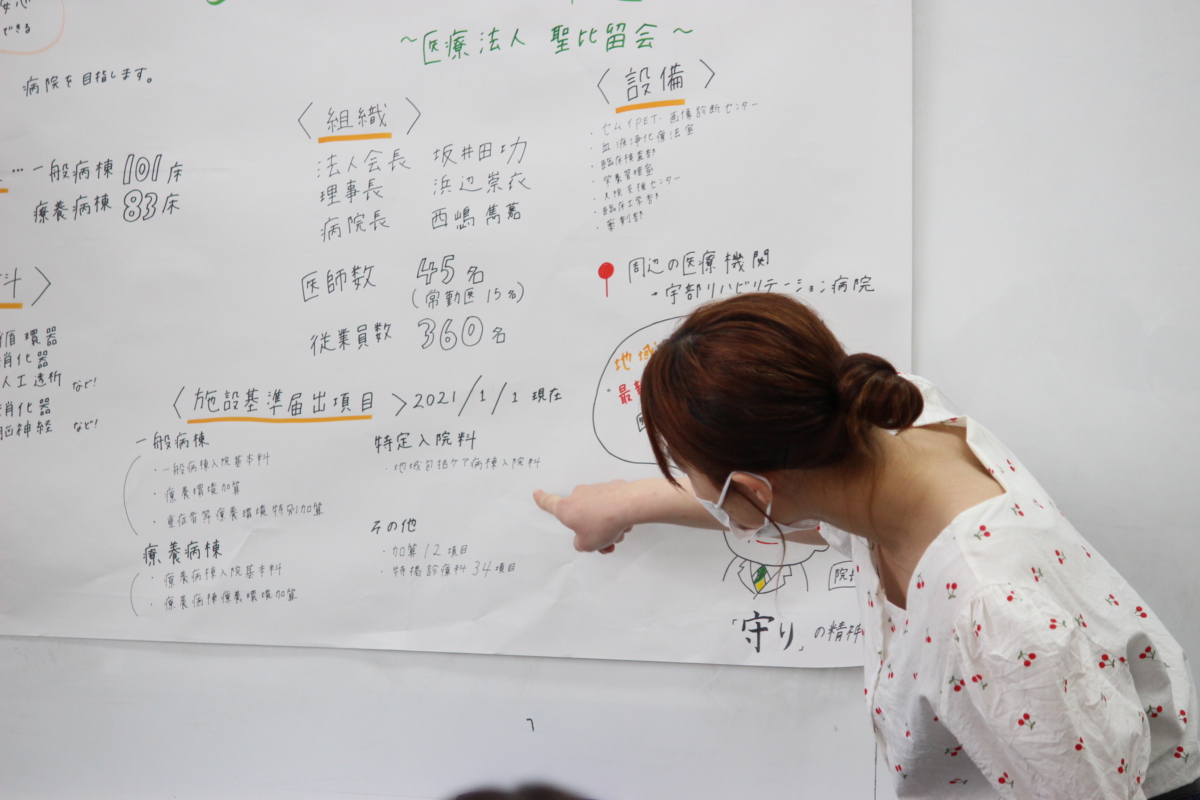 できる
病院を目指します。
～医療法人 聖比留会～
…一般病棟 101床
療養病棟 83床
循環器
消化器
人工透析 など!
消化器
脳神経 など!
〈組織〉
法人会長 坂井田功
理事長 浜辺崇衣
病院長 西嶋雋嘉
医師数 45名
(常勤医15名)
従業員数 360名
〈設備〉
・セムイPET-画像診断センター
・血液浄化療法室
・臨床検査部
・栄養管理室
・入院支援センター
・臨床工学部
・薬剤部
周辺の医療機関
・宇部リハビリテーション病院
地域
最
〈施設基準届出項目〉2021/1/1 現在
一般病棟
・一般病棟入院基本料
・療養環境加算
・重症者等療養環境特別加算
療養病棟
・療養病棟入院基本料
・療養病棟療養環境加算
特定入院料
・地域包括ケア病棟入院料
その他
・加算12項目
・特掲診療料34項目
院長
「守り」の精神